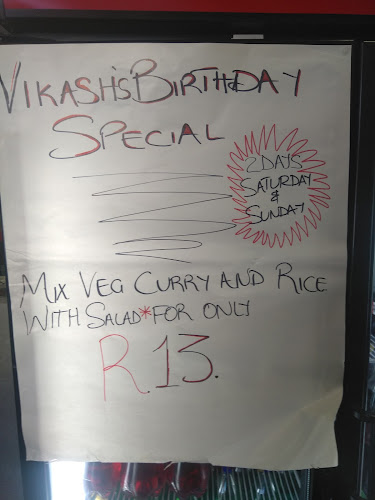 VIKASH'S BIRTHDAY
SPECIAL
2 DAYS
SATURDAY
&
SUNDAY
MIX VEG CURRY AND RICE
WITH SALAD*FOR ONLY
R.13.